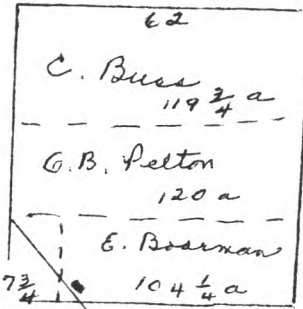 62
C. Buss
119 3/4 a
G.B. Pelton
120 a
E. Boarman
7 3/4
104 1/4 a